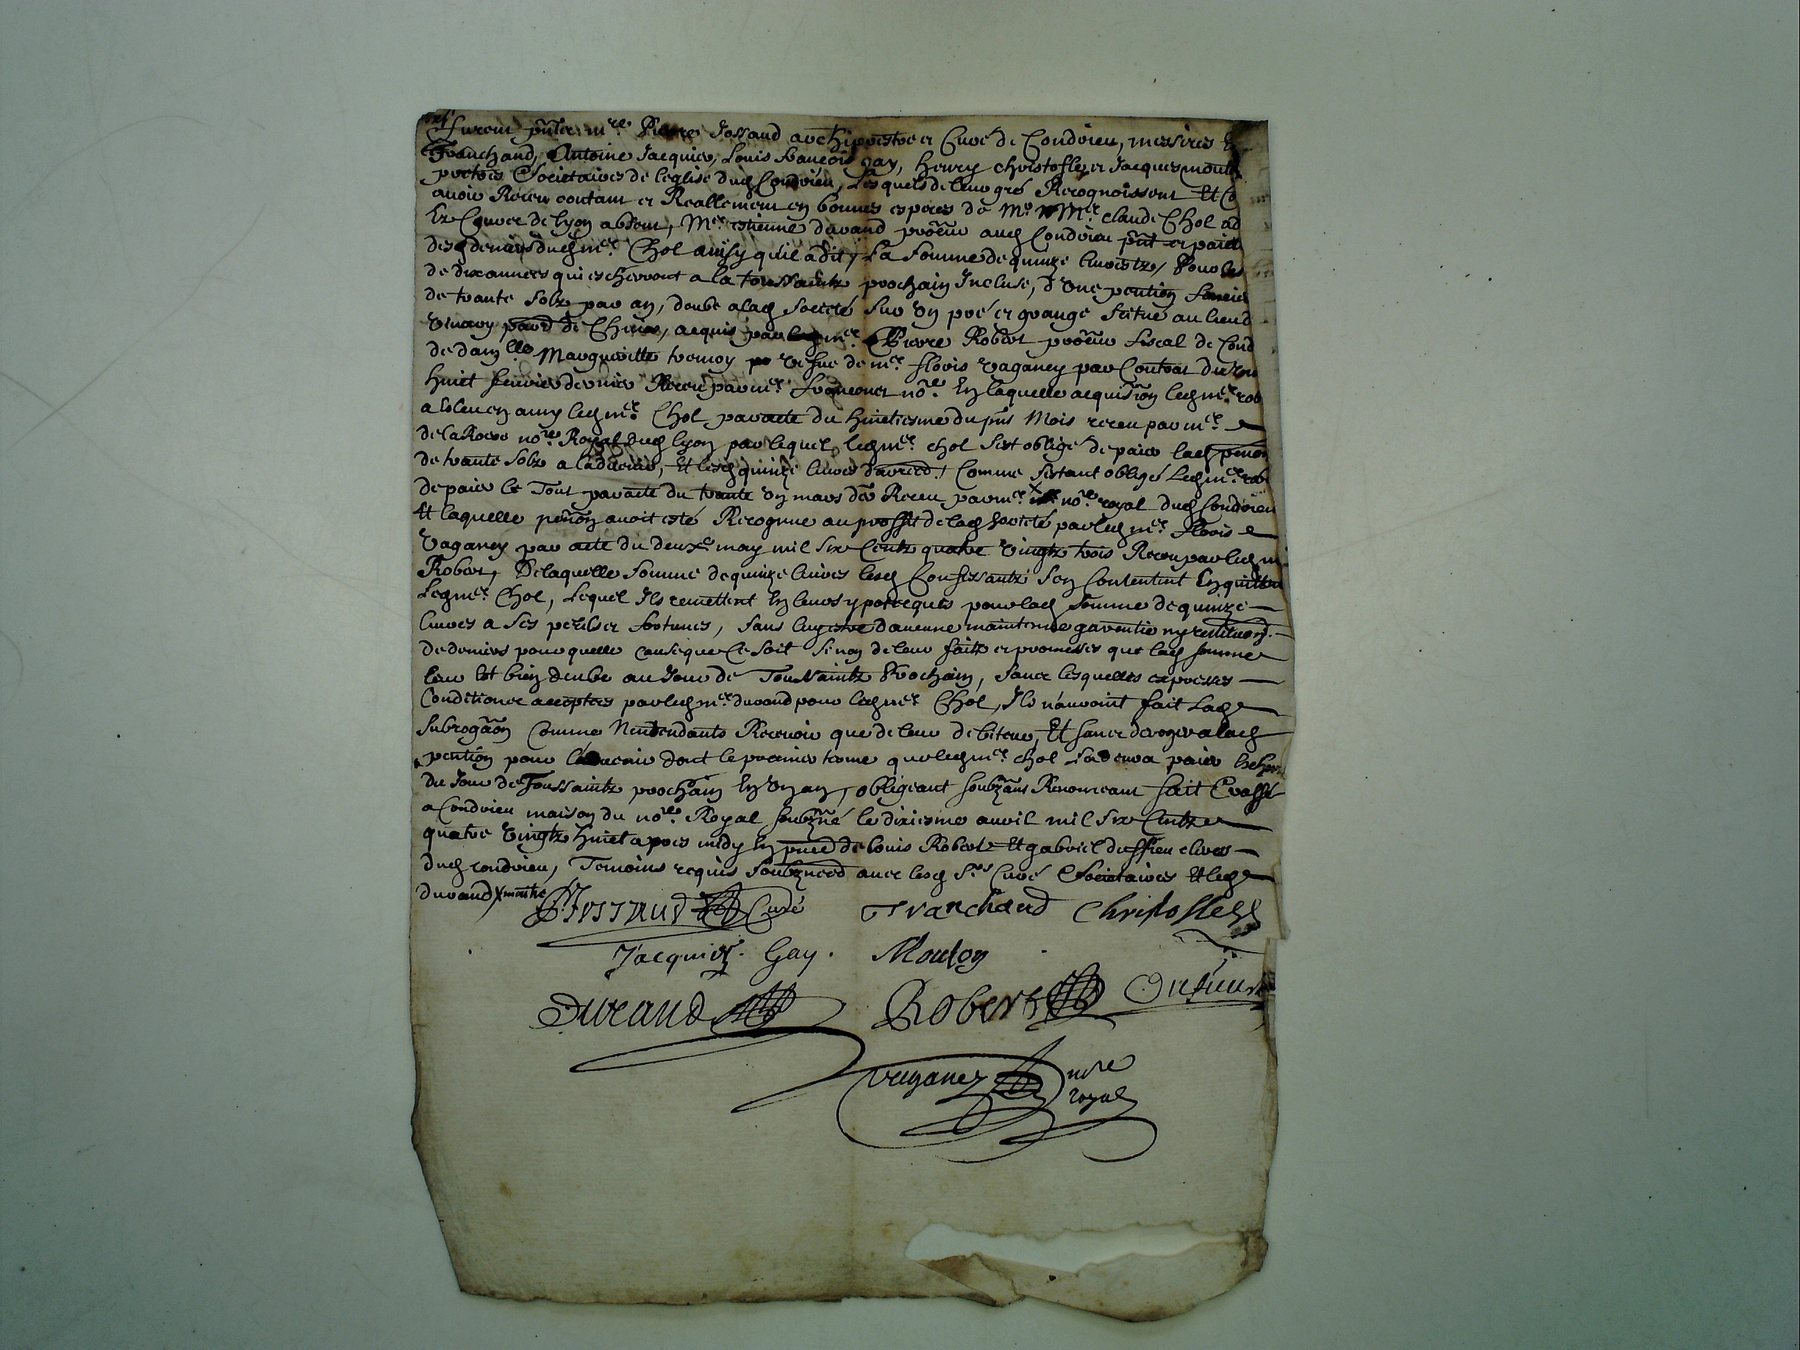 furent pñts mre Pierre Jossaud archiprestre et Curé de Condrieu, messires
Tranchand, Antoine Jacquier, Louis francois Gay, Henry christofle, et Jacques mouto
prebtres Societaires de leglise dud Condrieu, Lesquels de leur gré Recognoissent Et Co
avoir Receu contant et Reallement en bonnes especes de Mr Me claude Chol ad
Et Conver de lyon absent, Mre estienne durand procûr aud Condrieu pñt et paiet
des deniers dud mre Chol ainsy quil a dit, La Somme de quinze livres tz, Pour les
de dix années qui escherront a la toussaintz prochain Incluse, d'Une pention fonciere
de trante Solz par an, deube a lad Societé Sur Un pré et grange Scitué au lieu d
Vinary, de Cheres, acquis par mre Pierre Robert procûr fiscal de Cond
de damlle Margueritte tremoy vefue de mre flovis vaganey par Contrat du
huict feuvrier dernier Receu par mre francones nore En laquelle acquisiõn led mre rob
a esleu en amy led mre Chol par acte du huictiesme du pñs Mois receu par mre
de la Roere nore Royal dud lyon par lequel led mre chol sest obligé de paier lad pention
de trante Solz a ladvenir, Et lesd quinze livres darreĩd, Comme sestant obligé Led mre rob
de paier le Tout par acte du trante Un mars der Receu par mre x nore royal dud Condrieu
Et laquelle pentiõn avoit esté Recognue au proffit de lad Societé par led mre flovis
Vaganey par acte du deuxe may mil Six Centz quatre Vingtz trois Receu par led m
Robert, De laquelle Somme de quinze livres lesd Confessantz Sen Contentent En quittent
Led mre Chol, Lequel Ils remettent En leurs ypotheques pour lad Somme de quinze
livres a Ses perilz et fortunes, Sans aucune maintenue garentie ny restitution
de deniers pour quelle cause que Ce Soit Sinon de leur faitz et promesses que lad Somme
leur est bien deube au Jour de ToussSaintz Prochain, Sans lesquelles expresses
Conditions acceptees par led mre durand pour led mre Chol, Ils nauroint fait Lad
Subrogãon Comme Nentendants Recevoir que de leur debiteur, Et sans deroger a lad
pentiõn pour ladvenir dont le premier terme que led mre chol Sadevra paier
du Jour de Toussaintz prochain En Un an, obligeant soubzans Renonceant fait Et passé
a Condrieu maison du nore Royal soubzné le dixiesme avril mil Six Centz
quatre Vingtz huict apres midy En pñce de Louis Robert Et gabriel duffieu clercs
dud condrieu, Temoins requis Soubznéed avec lesd Srs Curé Societaires Et led
durand
Jossaud Curé Tranchand Christofle
Jacquier. Gay. Mouton
Durand Robert Duffieu
vaganey nore
royal